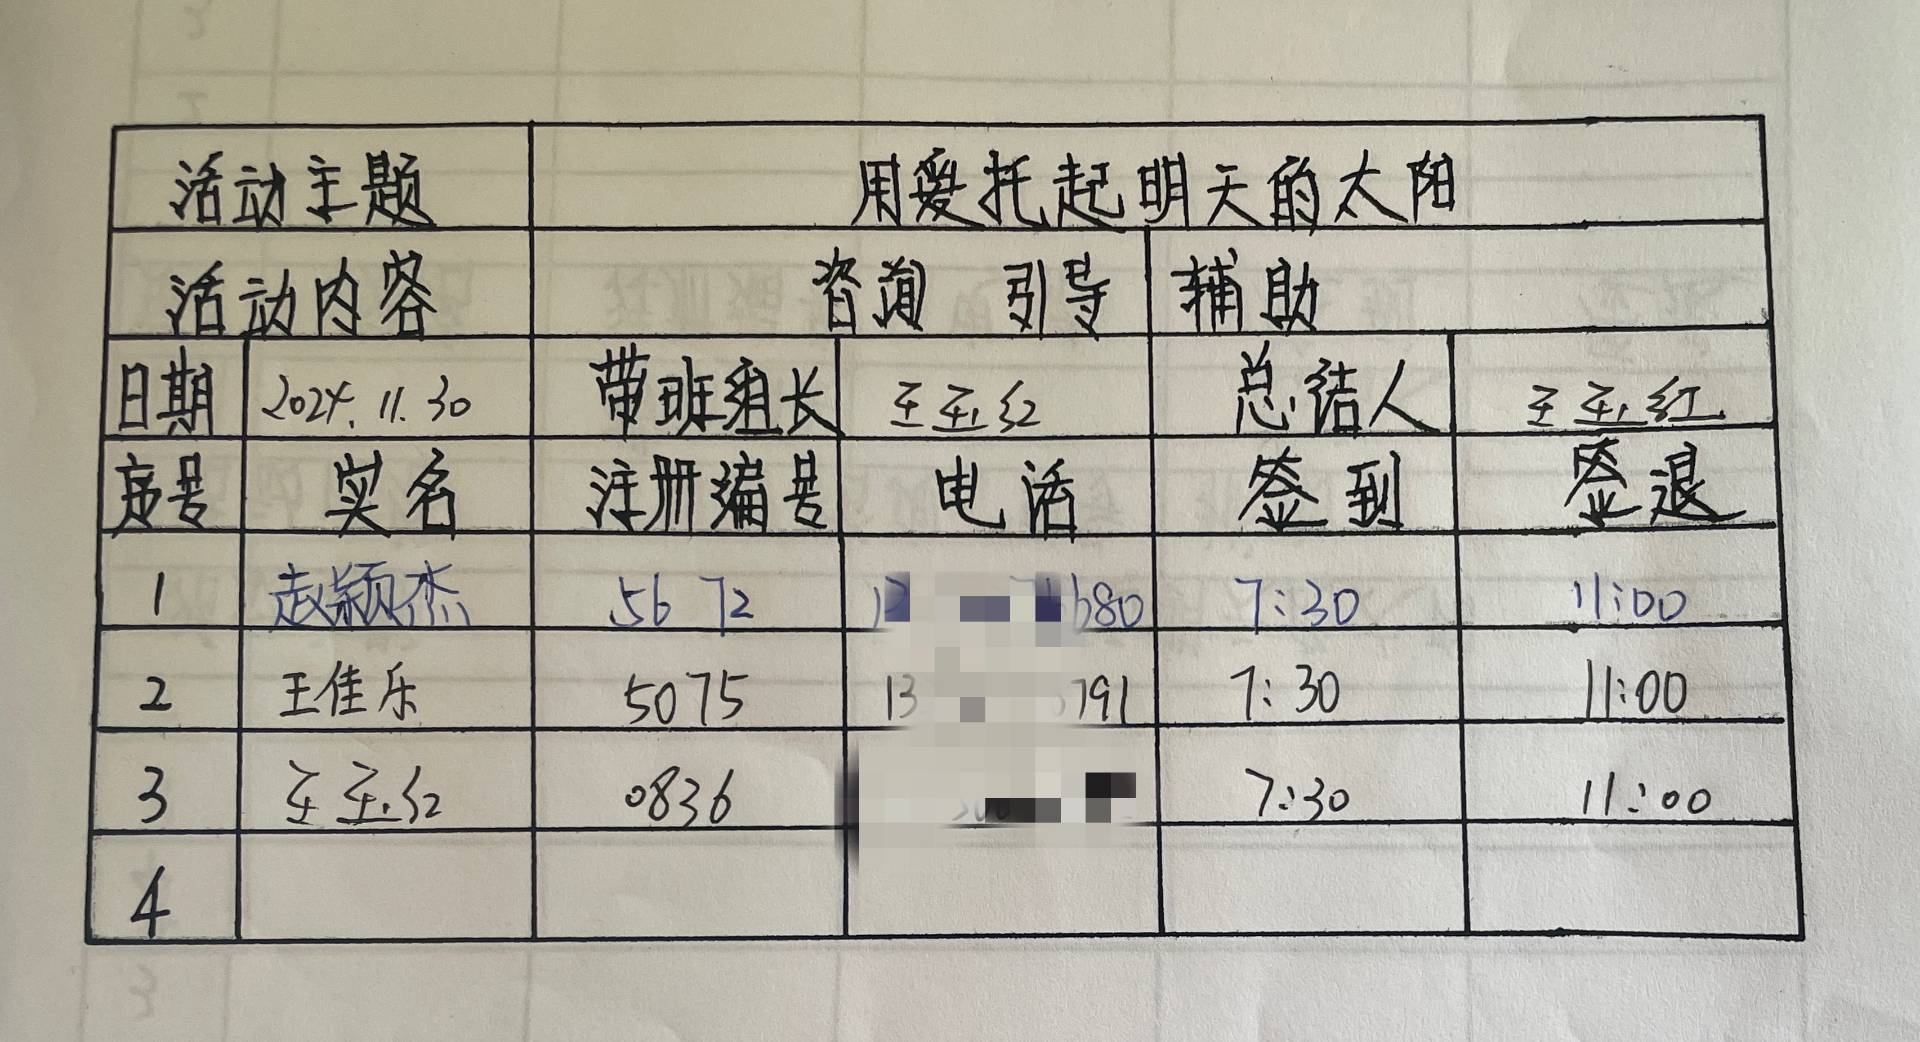 活动主题 用爱托起明天的太阳
活动内容 咨询 引导 辅助
日期 2024.11.30 带班组长 王玉红 总结人 王玉红
序号 实名 注册编号 电话 签到 签退
1 赵颖杰 5672 680 7:30 11:00
2 王佳乐 5075 13 791 7:30 11:00
3 王玉红 0836 7:30 11:00
4